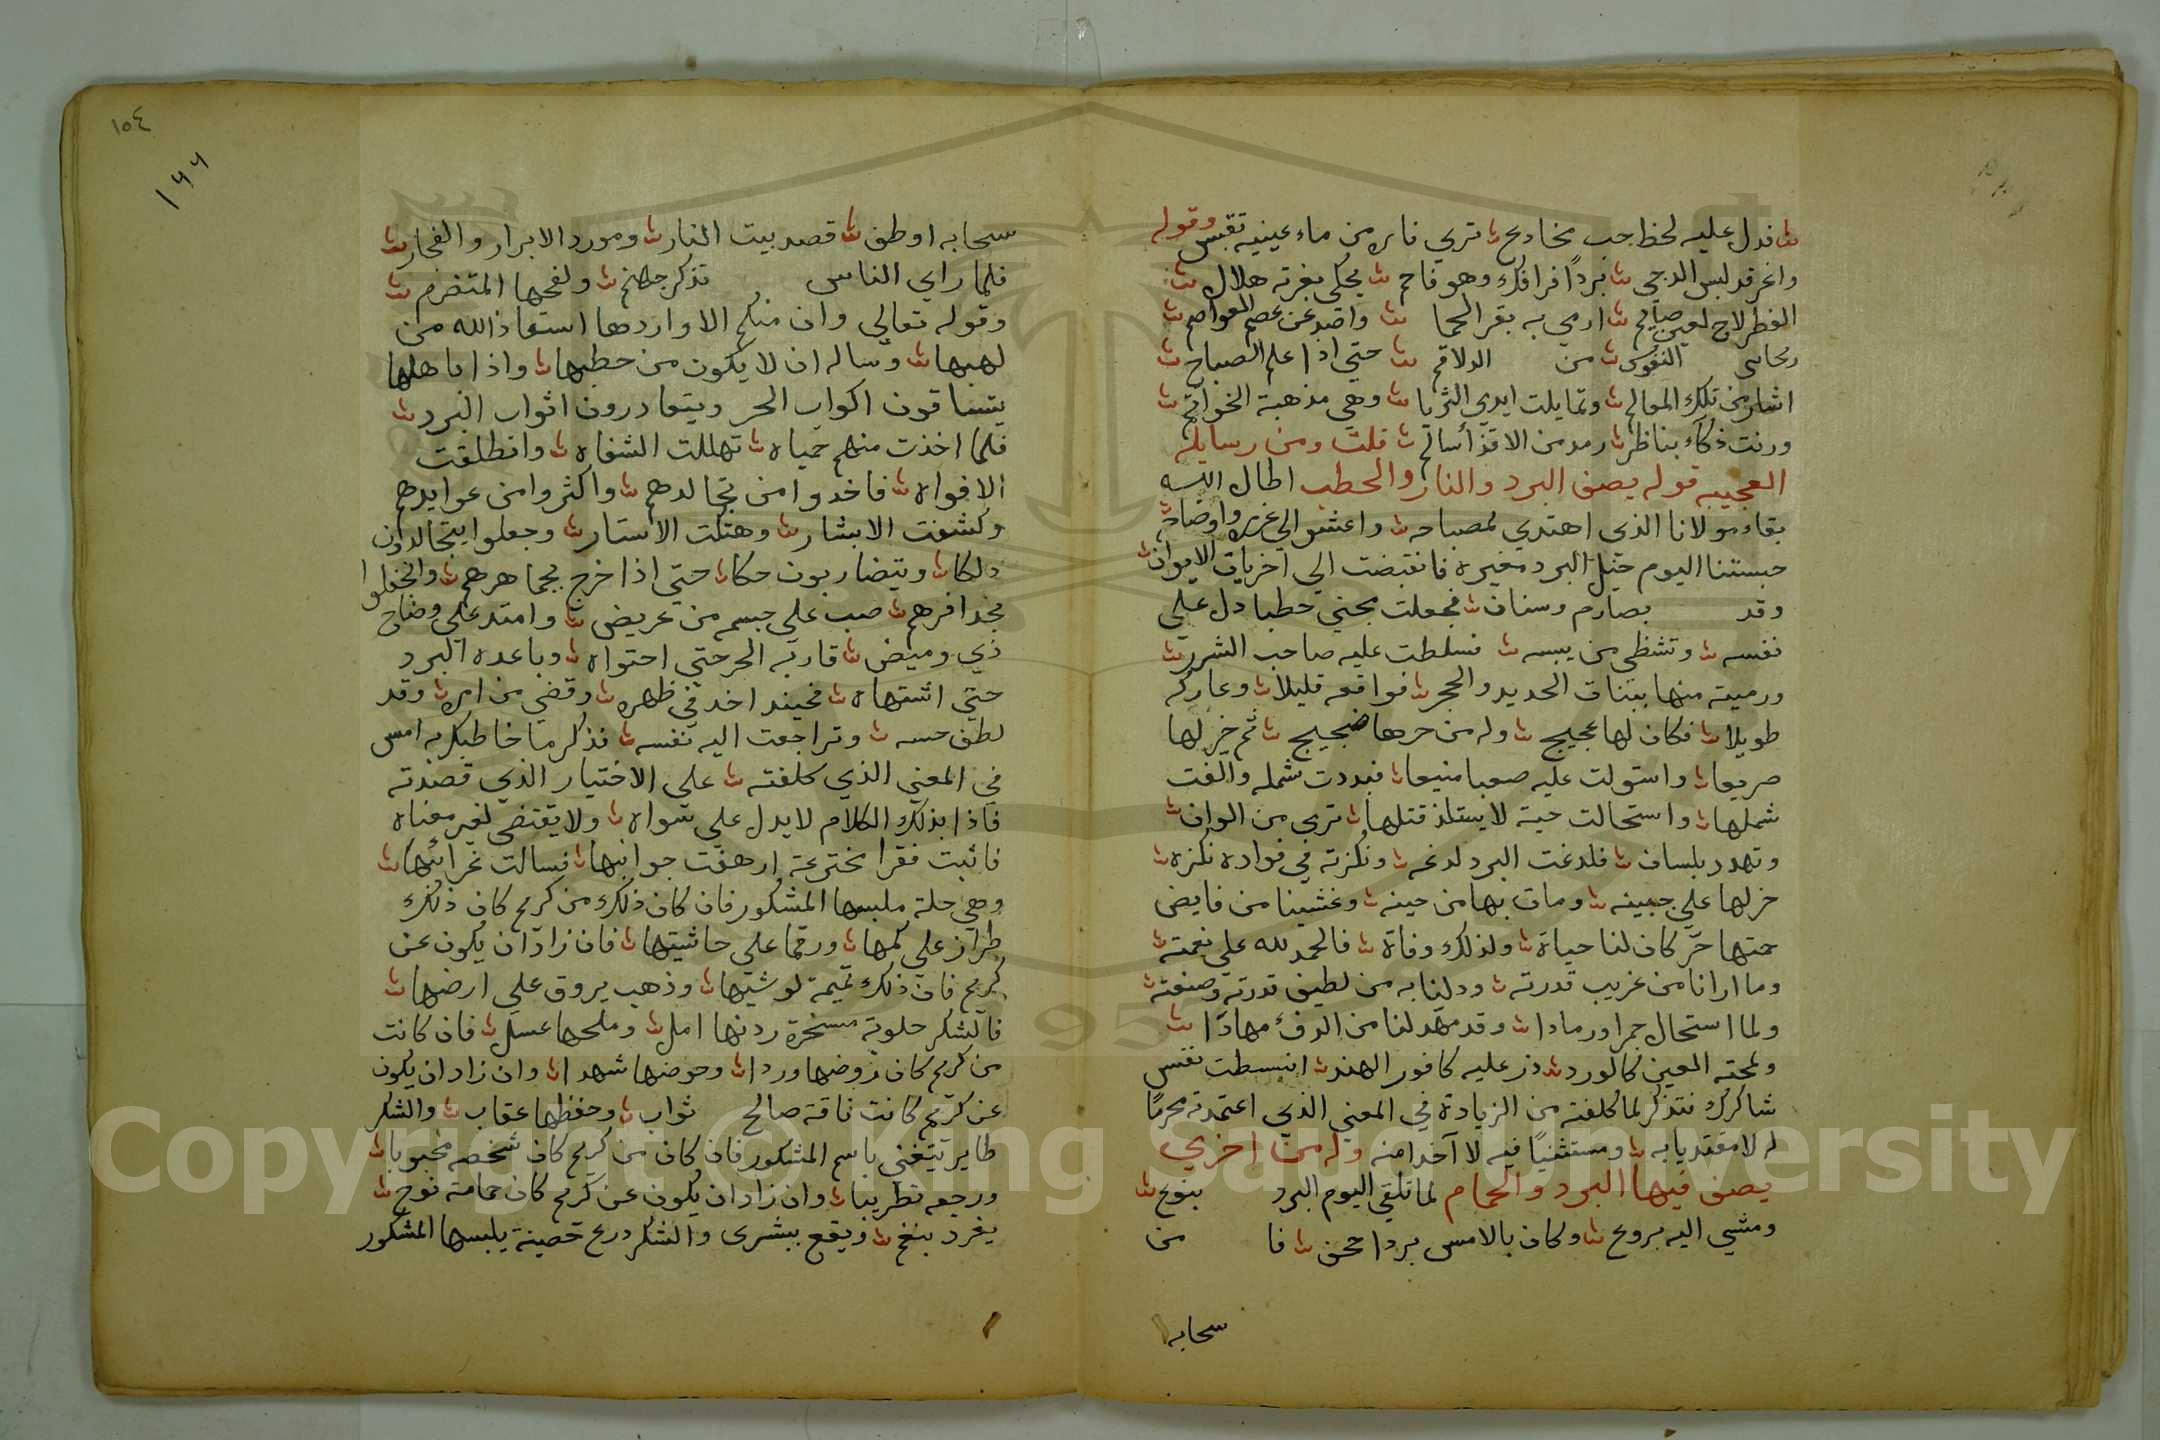 فدل عليه لحظ حب مخادع تري ناره من ماء عينيه تقبس وقوله
واغر قد لبس الدجى بردا فراقك وهو فاحم يحكى بغرته هلال
الفطر لاح لعين صايم ارمي به بقر الحما واصد عن عصم العواصم
النفوس من الدلاقم حتي اذا علم الصباح
اشار من تلك المعالم وتمايلت ايدي الثريا وهي مذهبة الخواتم
ورنت ذكاء بناظر رمد من الاقذأسالم قلت ومن رسايله
العجيبه قوله يصف البرد والنار والحطب اطال الله
بقاء مولانا الذي اهتدي لمصباحه واعشو الي غرره واوضاحه
حبستنا اليوم خيل البرد مغيره فانقبضت الي اخريات الايوان
وقد بصارم وسنان فجعلت مجني حطبا دل على
نفسه وتشظي من يبسه فسلطت عليه صاحب الشرر
ورميته منها ببنات الحديد والحجر فواقعه قليلا وعاركه
طويلا فكان لها عجيج وله من حرها ضجيج ثم خر لها
صريعا واستولت عليه صعبا منيعا فبددت شمله والفت
شملها واستحالت حية لا يستلذ قتلها تربى من الوان
وتهدر بلسان فلدغت البرد لدغه ونكزته في فواده نكزه
خر لها علي جبينه ومات بها من حينه وغشينا من فايض
حمتها حر كان لنا حياة ولذلك وفاة فالحمد لله علي نعمته
وما ارانا من غريب قدرته ودلنا به من لطيف قدرته وصنعته
ولما استحال جمرا ورمادا وقد مهد لنا من الدفء مهادا
ولمحته العين كالورد ذر عليه كافور الهند انبسطت نفس
شاكرك فتذكر لما كلفته من الزيادة في المعني الذي اعتمدته محرما
له لا مقتديا به ومستثنيا فيه لا آخدا منه وله من اخري
يصف فيها البرد والحمام لما تلقي اليوم البرد بنوع
ومشي اليه بروح وكان بالامس بردا محض فا من
سحابه
١٥٤
١٦٦
سحابه اوطف قصد بيت النار ومورد الابرار والفجار
فلما راي الناس تذكر جهنم ولفحها المتضرم
وقوله تعالي وان منكم الا واردها استعاذ الله من
لهبها وساله ان لا يكون من حطبها واذا باهلها
يتساقون اكواب الحر ويتعادرون اثواب البرد
فلما اخذت منهم حمياه تهللت الشفاه وانطلقت
الافواه فاخدوا من تجالدهم واكثروا من عوايدهم
وكشفت الابشار وهتكت الاستار وجعلوا يتجالدون
دلكا ويتضاربون حكا حتي اذا خرج بجماهرهم وانجفلوا
بحدافرهم صب علي جسمه من عريض وامتد علي وضاح
ذي وميض قاربه الحر حتي احتواه وباعده البرد
حتي اشتهاه فحيند اخد في ظهره وقضي من امره وقد
لطف حسه وتراجعت اليه نفسه فذكر ما خاطبك به امس
في المعني الذي كلفته على الاختيار الذي قصدته
فاذا بذلك الكلام لا يدل علي سواه ولا يقتضي لغير معناه
فاثبت فقرا مخترعة ارهفت جوانبها فسالت غرائبها
وهي حلة ملبسها المشكور فان كان ذلك من كريم كان ذلك
طراز علي كمها ورقما علي حاشيتها فان زاد ان يكون عن
كريم فان ذلك تميمة لوشيها وذهب يروق علي ارضها
فالشكر حلوبة مسخرة ردنها امل وملحها عسل فان كانت
من كريم كان روضها وردا وحوضها شهدا وان زاد ان يكون
عن كريم كانت ناقة صالح ثواب وحفظها عقاب والشكر
طاير يتغني باسم المشكور فان كان من كريم كان شخصه محبوبا
ورجعه تطريبا وان زاد ان يكون عن كريم كان حمامة نوح
يغرد بنغم ويقع ببشرى والشكر درع حصينة يلبسها المشكور